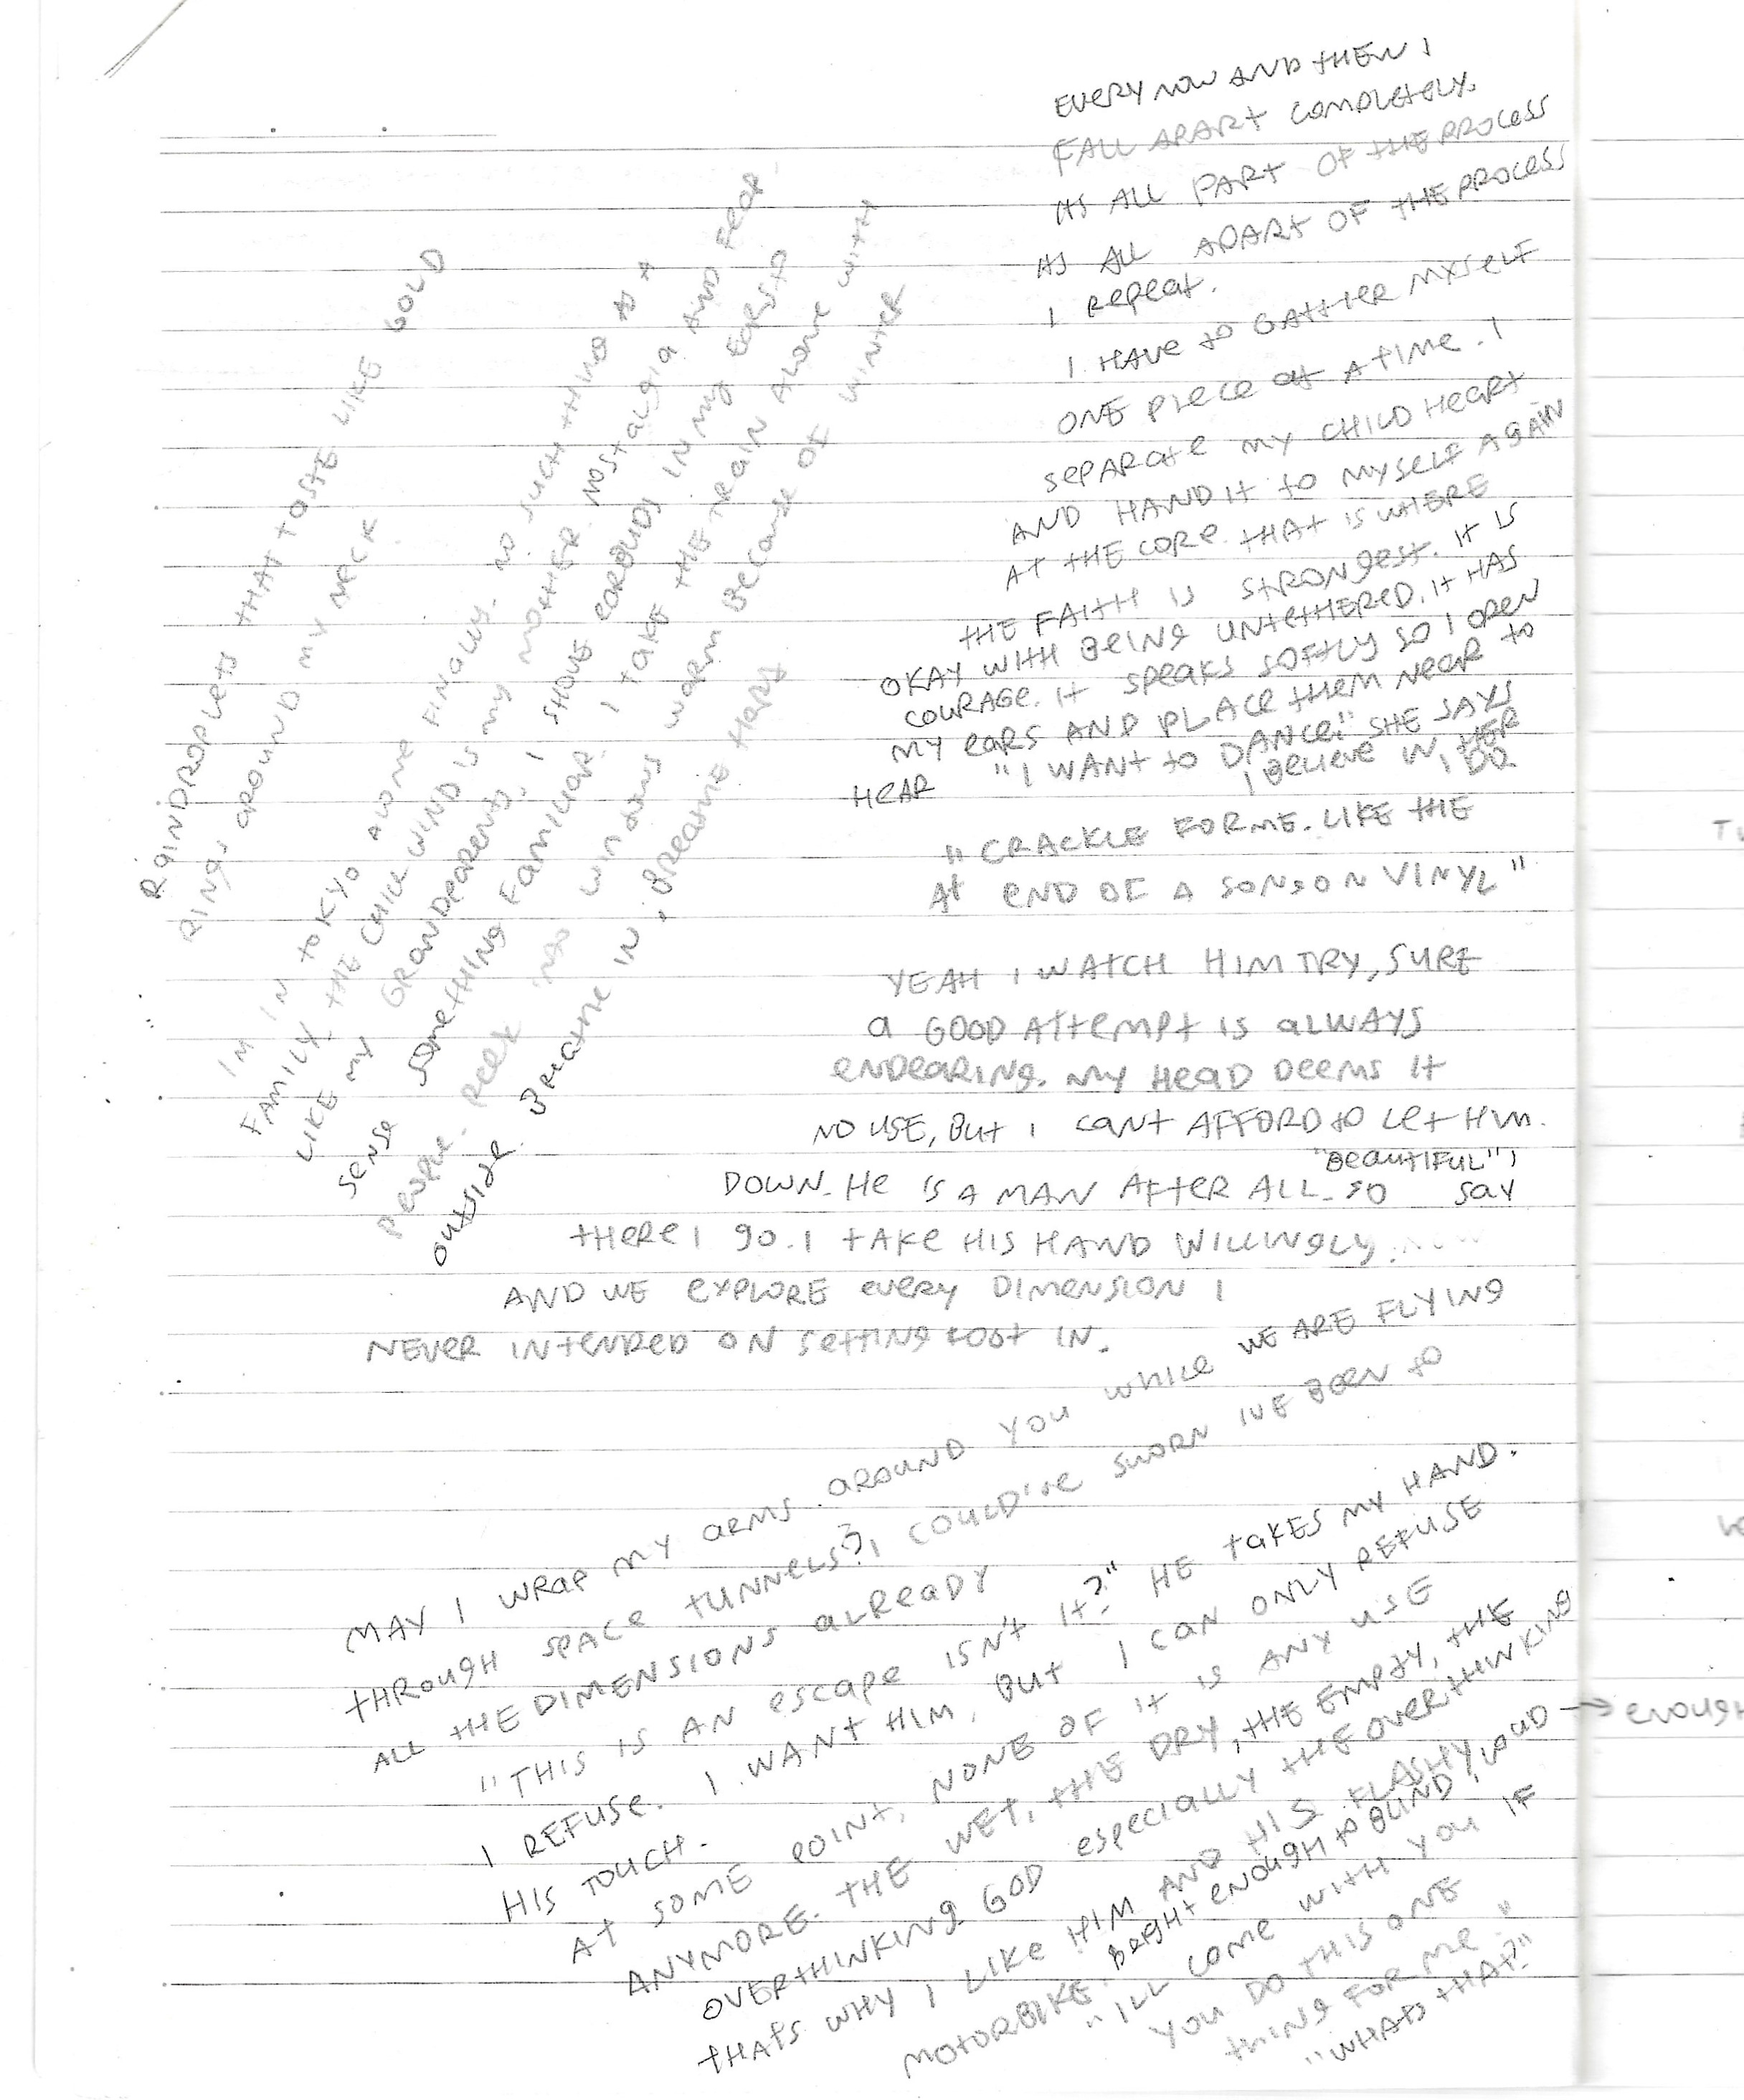 EVERY NOW AND THEN I
FALL APART COMPLETELY.
ITS ALL PART OF THE PROCESS
ITS ALL APART OF THE PROCESS
I REPEAT.
I HAVE to GATHER MYSELF
ONE PIECE at A TIME. I
SEPARATE MY CHILD HEART
AND HAND IT to MYSELF AGAIN
AT THE CORE. THAT IS WHERE
THE FAITH IS STRONGEST. IT IS
OKAY WITH BEING UNTETHERED. IT HAS
COURAGE. IT SPEAKS SOFTLY SO I OPEN
MY EARS AND PLACE THEM NEAR to
HEAR "I WANT to DANCE." SHE SAYS
I BELIEVE IN HER
I DO
"CRACKLE FOR ME. LIKE THE
At END OF A SONG ON VINYL"
YEAH I WATCH HIM TRY, SURE
a GOOD Attempt IS ALWAYS
ENDEARING. MY HEAD DEEMS It
NO USE, BUT I CANT AFFORD to LET HIM
DOWN. HE IS A MAN AFTER ALL. SO "BEAUTIFUL", I SAY
THERE I GO. I TAKE HIS HAND WILLINGLY
AND WE EXPLORE EVERY DIMENSION I
NEVER INTENDED ON SETTING FOOT IN.
RAINDROPLETS THAT TASTE LIKE GOLD
RINGS AROUND MY NECK
IM IN TOKYO ALONE FINALLY. NO SUCH THING AS A
FAMILY THE CHILL WIND IS MY MOTHER NOSTALGIA AND FEAR
LIKE MY GRANDPARENTS. I SHOVE EARBUDS IN MY EARS TO
SENSE SOMETHING FAMILIAR. I TAKE THE TRAIN ALONE WITH
PEOPLE. PEEK windows WARM BECAUSE OF WINTER
OUTSIDE. BREATHE IN, BREATHE HARD
MAY I WRAP MY ARMS AROUND YOU WHILE WE ARE FLYING
THROUGH SPACE TUNNELS? I COULD'VE SWORN IVE BEEN to
ALL THE DIMENSIONS ALREADY
"THIS IS AN ESCAPE ISN't It?" HE TAKES MY HAND.
I REFUSE. I WANT HIM, BUT I CAN ONLY REFUSE
HIS TOUCH.
AT SOME POINT, NONE OF IT IS ANY USE
ANYMORE. THE WET, THE DRY, THE EMPTY, THE
OVERTHINKING GOD ESPECIALLY THE OVERTHINKING
THATS WHY I LIKE HIM AND HIS FLASHY
MOTORBIKE. BRIGHT ENOUGH to BLIND, LOUD → ENOUGH
"ILL COME WITH YOU IF
YOU DO THIS ONE
THING FOR ME."
"WHATS THAT?"